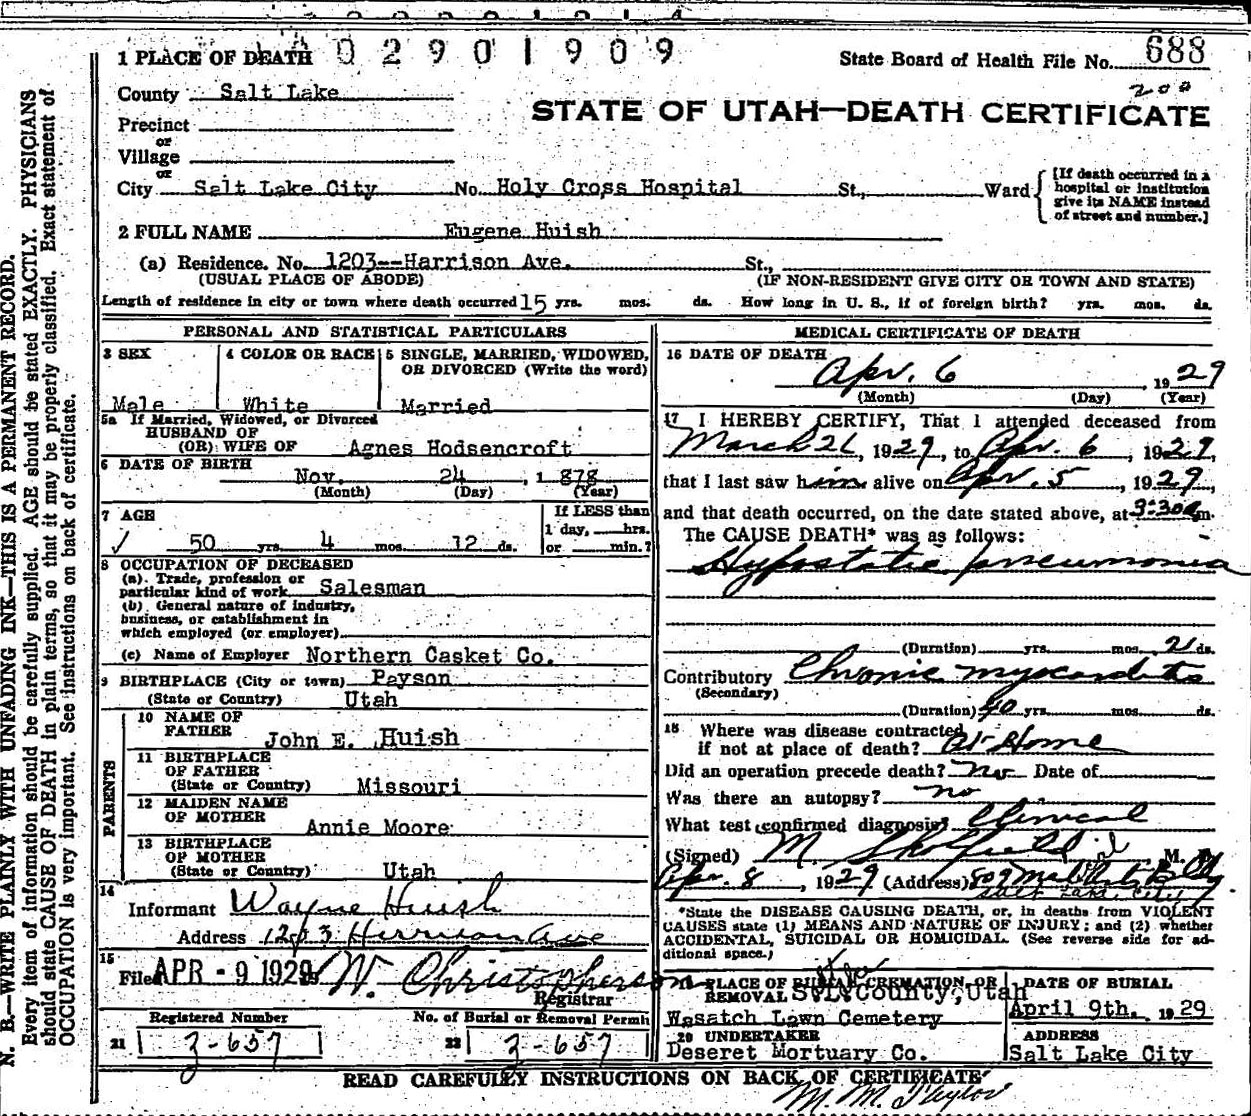 02901909
1 PLACE OF DEATH
State Board of Health File No. 688
200
County Salt Lake
STATE OF UTAH—DEATH CERTIFICATE
Precinct
or
Village
or
City Salt Lake City No. Holy Cross Hospital St., Ward
[If death occurred in a
hospital or institution
give its NAME instead
of street and number.]
2 FULL NAME Eugene Huish
(a) Residence. No. 1203--Harrison Ave. St.,
(USUAL PLACE OF ABODE) (IF NON-RESIDENT GIVE CITY OR TOWN AND STATE)
Length of residence in city or town where death occurred 15 yrs. mos. ds. How long in U. S., if of foreign birth? yrs. mos. ds.
PERSONAL AND STATISTICAL PARTICULARS
3 SEX 4 COLOR OR RACE 5 SINGLE, MARRIED, WIDOWED,
OR DIVORCED (Write the word)
Male White Married
5a If Married, Widowed, or Divorced
HUSBAND OF
(OR) WIFE OF Agnes Hodsencroft
6 DATE OF BIRTH Nov. 24, 1878
(Month) (Day) (Year)
7 AGE If LESS than
1 day, hrs.
✓ 50 yrs. 4 mos. 12 ds. or min.?
8 OCCUPATION OF DECEASED
(a) Trade, profession or
particular kind of work Salesman
(b) General nature of industry,
business, or establishment in
which employed (or employer)
(c) Name of Employer Northern Casket Co.
9 BIRTHPLACE (City or town) Payson
(State or Country) Utah
PARENTS
10 NAME OF
FATHER John E. Huish
11 BIRTHPLACE
OF FATHER
(State or Country) Missouri
12 MAIDEN NAME
OF MOTHER Annie Moore
13 BIRTHPLACE
OF MOTHER
(State or Country) Utah
14
Informant Wayne Huish
Address 1203 Harrison Ave
15
Filed APR - 9 1929 W. Christopherson
Registrar
Registered Number No. of Burial or Removal Permit
21 3-657 22 3-657
MEDICAL CERTIFICATE OF DEATH
16 DATE OF DEATH
Apr. 6, 1929
(Month) (Day) (Year)
17 I HEREBY CERTIFY, That I attended deceased from
March 26, 1929, to Apr. 6, 1929,
that I last saw him alive on Apr. 5, 1929,
and that death occurred, on the date stated above, at 3:30a m.
The CAUSE DEATH* was as follows:
Hypostatic pneumonia
(Duration) yrs. mos. 2 ds.
Contributory Chronic myocarditis
(Secondary)
(Duration) 40 yrs. mos. ds.
18 Where was disease contracted
if not at place of death? At Home
Did an operation precede death? No Date of
Was there an autopsy? no
What test confirmed diagnosis? Clinical
(Signed) M. M. D.
Apr. 8, 1929 (Address) 809 Bldg.
Salt Lake City
*State the DISEASE CAUSING DEATH, or, in deaths from VIOLENT
CAUSES state (1) MEANS AND NATURE OF INJURY; and (2) whether
ACCIDENTAL, SUICIDAL OR HOMICIDAL. (See reverse side for ad-
ditional space.)
19 PLACE OF BURIAL, CREMATION, OR
REMOVAL S.L. County, Utah
Wasatch Lawn Cemetery
DATE OF BURIAL
April 9th. 1929
20 UNDERTAKER
Deseret Mortuary Co.
ADDRESS
Salt Lake City
READ CAREFULLY INSTRUCTIONS ON BACK OF CERTIFICATE
M. M. Taylor
N. B.—WRITE PLAINLY WITH UNFADING INK—THIS IS A PERMANENT RECORD.
Every item of information should be carefully supplied. AGE should be stated EXACTLY. PHYSICIANS
should state CAUSE OF DEATH in plain terms, so that it may be properly classified. Exact statement of
OCCUPATION is very important. See instructions on back of certificate.